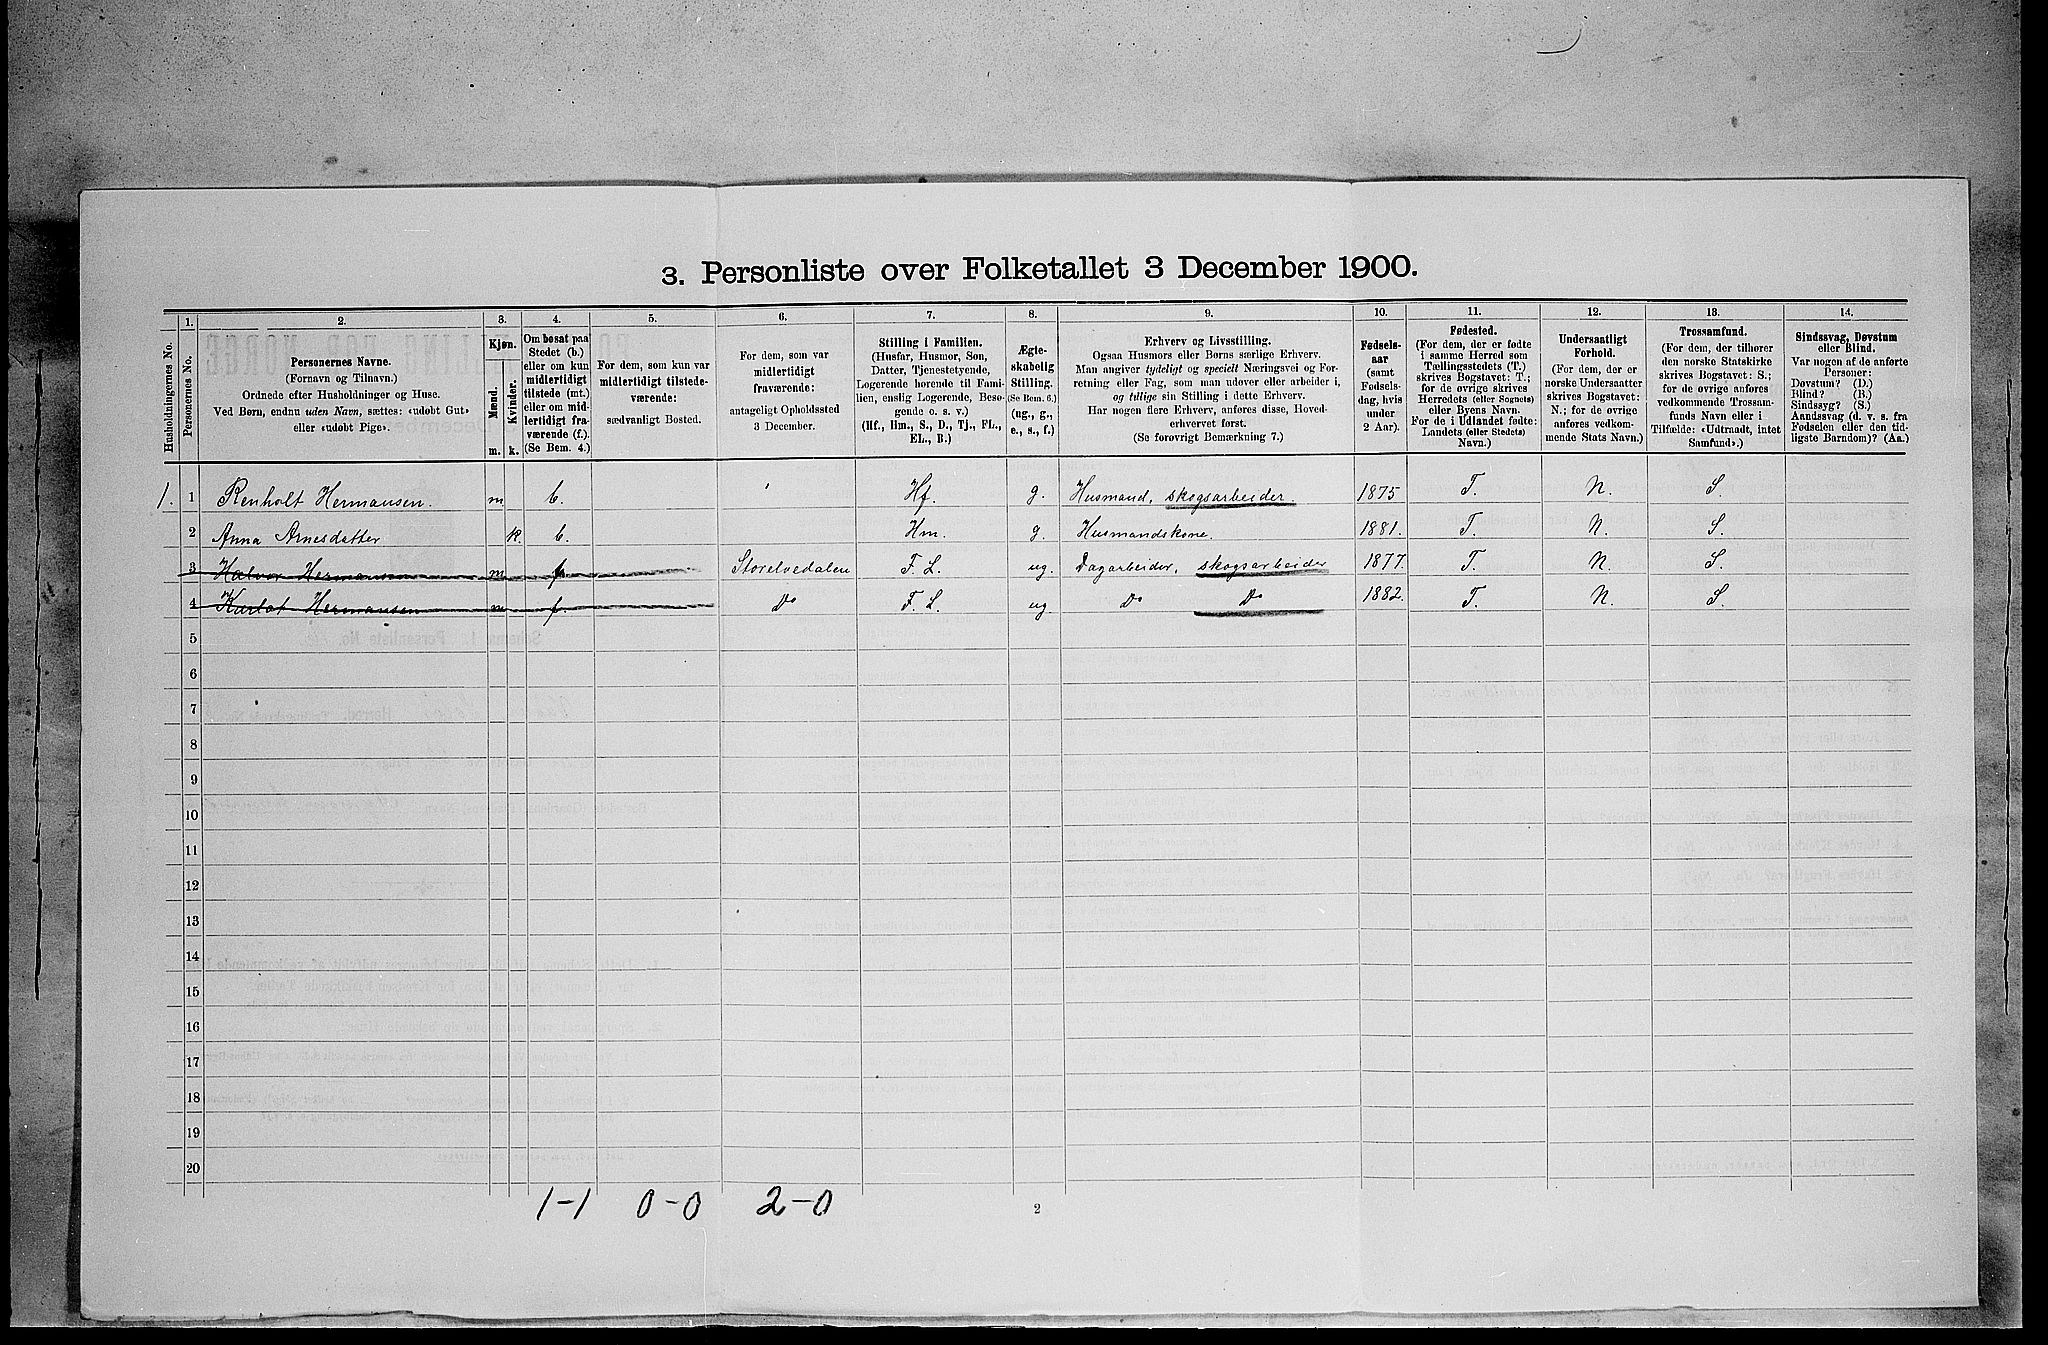 3. Personliste over Folketallet 3 December 1900.
Husholdningernes No.
1.
Personernes No.
2.
Personernes Navne.
(Fornavn og Tilnavn.)
Ordnede efter Husholdninger og Huse.
Ved Børn, endnu uden Navn, sættes: «udøbt Gut»
eller «udøbt Pige».
3.
Kjøn.
Mænd.
Kvinder.
m.
k.
4.
Om bosat paa
Stedet (b.)
eller om kun
midlertidigt
tilstede (mt.)
eller om mid-
lertidigt fra-
værende (f.)
(Se Bem. 4.)
5.
For dem, som kun var
midlertidigt tilstede-
værende:
sædvanligt Bosted.
6.
For dem, som var
midlertidigt
fraværende:
antageligt Opholdssted
3 December.
7.
Stilling i Familien.
(Husfar, Husmor, Søn,
Datter, Tjenestetyende,
Logerende hørende til Fami-
lien, enslig Logerende, Besø-
gende o. s. v.)
(Hf., Hm., S., D., Tj., FL.,
EL., B.)
8.
Ægte-
skabelig
Stilling.
(Se Bem. 6.)
(ug., g.,
e., s., f.)
9.
Erhverv og Livsstilling.
Ogsaa Husmors eller Børns særlige Erhverv.
Man angiver tydeligt og specielt Næringsvei og For-
retning eller Fag, som man udøver eller arbeider i,
og tillige sin Stilling i dette Erhverv.
Har nogen flere Erhverv, anføres disse, Hoved-
erhvervet først.
(Se forøvrigt Bemærkning 7.)
10.
Fødsels-
aar
(samt
Fødsels-
dag, hvis
under
2 Aar).
11.
Fødested.
(For dem, der er fødte
i samme Herred som
Tællingsstedets (T.)
skrives Bogstavet: T.;
for de øvrige skrives
Herredets (eller Sognets)
eller Byens Navn.
For de i Udlandet fødte:
Landets (eller Stedets)
Navn.)
12.
Undersaatligt
Forhold.
(For dem, der er
norske Undersaatter
skrives Bogstavet:
N.; for de øvrige
anføres vedkom-
mende Stats Navn.)
13.
Trossamfund.
(For dem, der tilhører
den norske Statskirke
skrives Bogstavet: S.;
for de øvrige anføres
vedkommende Trossam-
funds Navn eller i
Tilfælde: «Udtraadt, intet
Samfund».)
14.
Sindssvag, Døvstum
eller Blind.
Var nogen af de anførte
Personer:
Døvstum? (D.)
Blind? (B.)
Sindssyg? (S.)
Aandssvag (d. v. s. fra
Fødselen eller den tid-
ligste Barndom)? (Aa.)
1. 1 Renholt Hermansen. m b. Hf. g. Husmand, skogsarbeider. 1875 T. N. S.
2 Anna Arnesdatter k. b. Hm. g. Husmandskone. 1881. T. N. S.
3 Halvor Hermansen m f. Storelvedalen F. L. ug. Dagarbeider, skogsarbeider 1877. T. N. S.
4 Karlot Hermansen m f. Do F. L. ug. Do Do 1882. T. N. S.
5
6
7
8
9
10
11
12
13
14
15
16
17
18
19
20
1-1 0-0 2-0
2